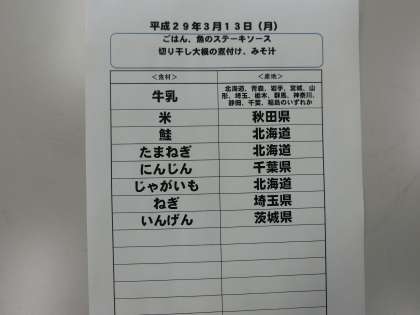 平成29年3月13日（月）
ごはん、魚のステーキソース
切り干し大根の煮付け、みそ汁
＜食材＞ ＜産地＞
牛乳 北海道、青森、岩手、宮城、山
形、埼玉、栃木、群馬、神奈川、
静岡、千葉、福島のいずれか
米 秋田県
鮭 北海道
たまねぎ 北海道
にんじん 千葉県
じゃがいも 北海道
ねぎ 埼玉県
いんげん 茨城県